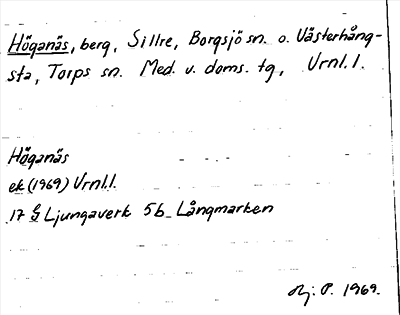 Höganäs, berg, Sillre, Borgsjö sn. o. Västerhång-
sta, Torps sn. Med. v. doms. tg, Vrnl. l.
Höganäs
ek (1969) Vrnl. l.
17 G Ljungaverk 5b Långmarken
P. 1969.